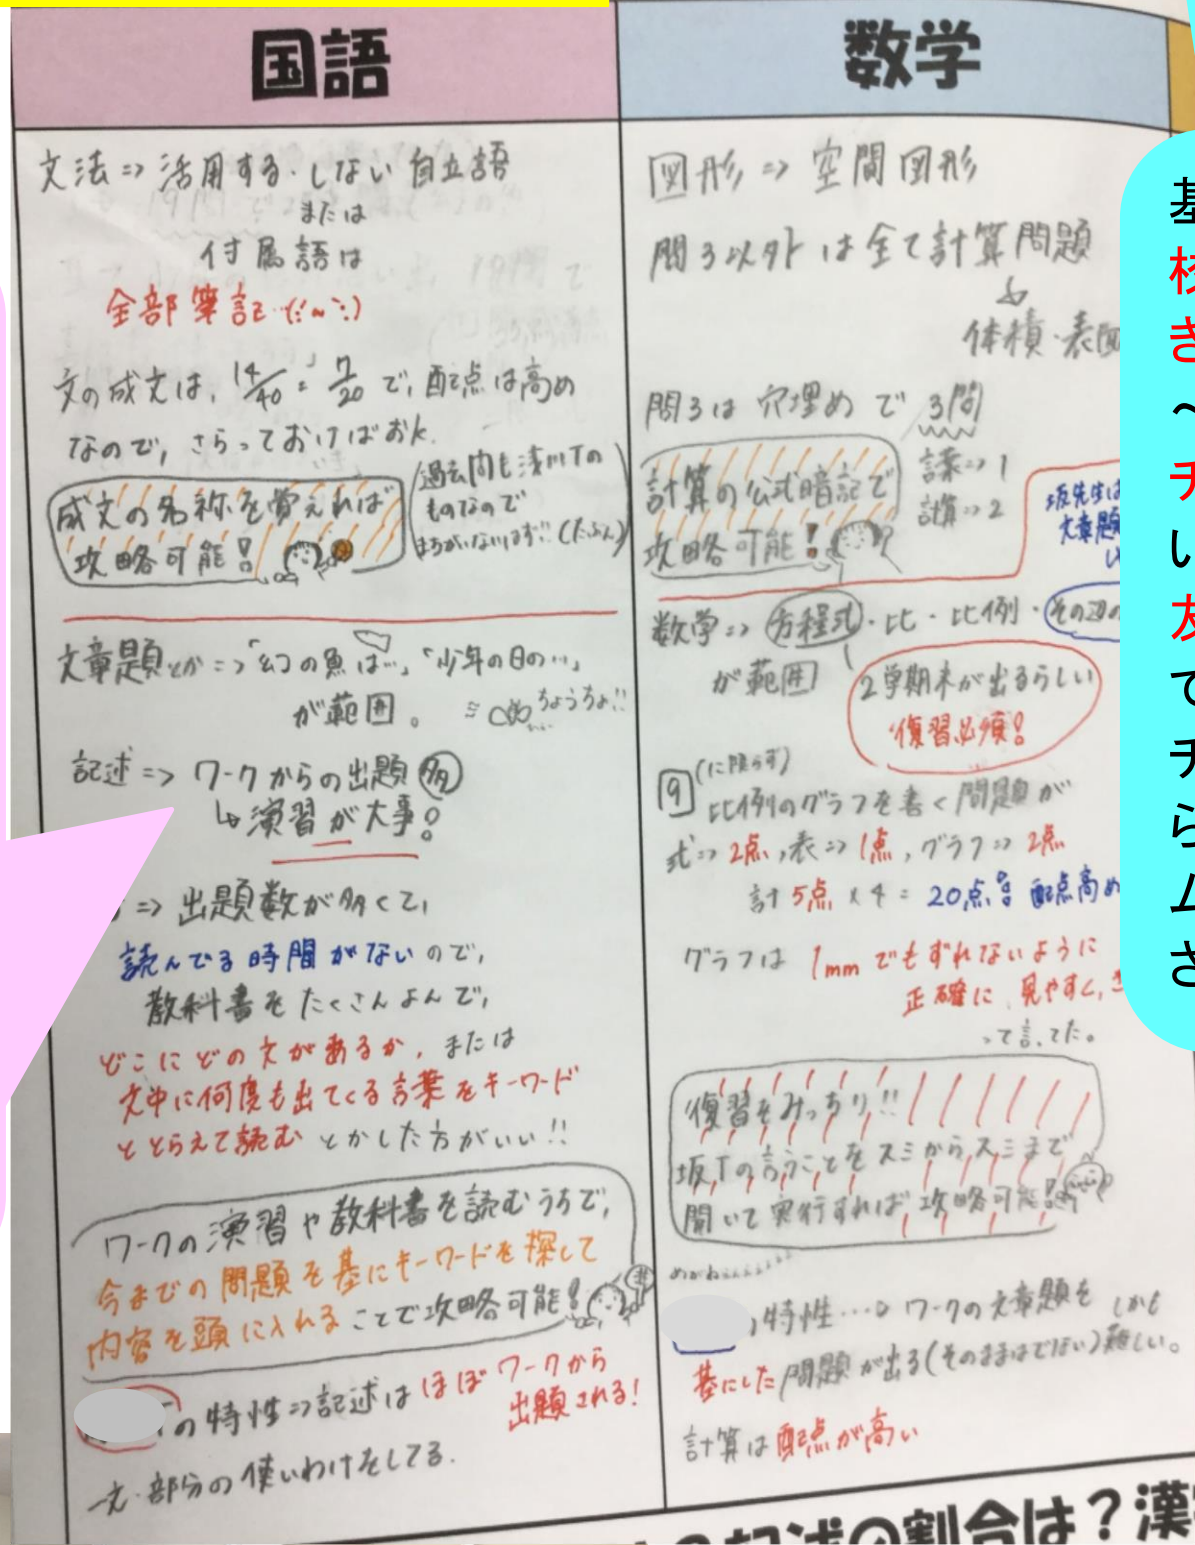 国語
文法⇒活用する・しない 自立語
または
付属語は
全部筆記
文の成文は、14/40=7/20で、配点は高め
なので、さらっておけばおk.
成文の名称を覚えれば
攻略可能!
過去問も浅川Tの
ものなので
まちがいないはず!!(たぶん)
文章題とか⇒「幻の魚は…」「少年の日の…」
が範囲。
ちょうちょ!!
記述⇒ワークからの出題多
↳演習が大事!
⇒出題数が多くて、
読んでる時間がないので、
教科書をたくさんよんで、
どこにどの文があるか、または
文中に何度も出てくる言葉をキーワード
ととらえて読むとかした方がいい!!
ワークの演習や教科書を読むうちで、
今までの問題を基にキーワードを探して
内容を頭に入れることで攻略可能!
の特性⇒記述はほぼワークから
出題される!
文・部分の使いわけをしてる.
数学
図形⇒空間図形
問3以外は全て計算問題
体積・表面
問3は穴埋めで3問
言葉⇒1
計算⇒2
計算の公式暗記で
攻略可能!
坂先生は
文章題
数学⇒方程式・比・比例・その辺の
が範囲
2学期末が出るらしい
復習必須!
9(に限らず)
比例のグラフを書く問題が
式⇒2点,表⇒1点,グラフ⇒2点
計5点×4=20点!! 配点高め
グラフは1mmでもずれないように
正確に、見やすく、き
って言ってた。
復習をみっちり!!
坂Tの言うことをスミからスミまで
聞いて実行すれば攻略可能!
めがね
の特性…ワークの文章題を
基にした問題が出る(そのままはでない)しかも難しい。
計算は配点が高い
記述の割合は?漢
基
枝
き
~
チ
い
友
て
チ
ら
ム
さ